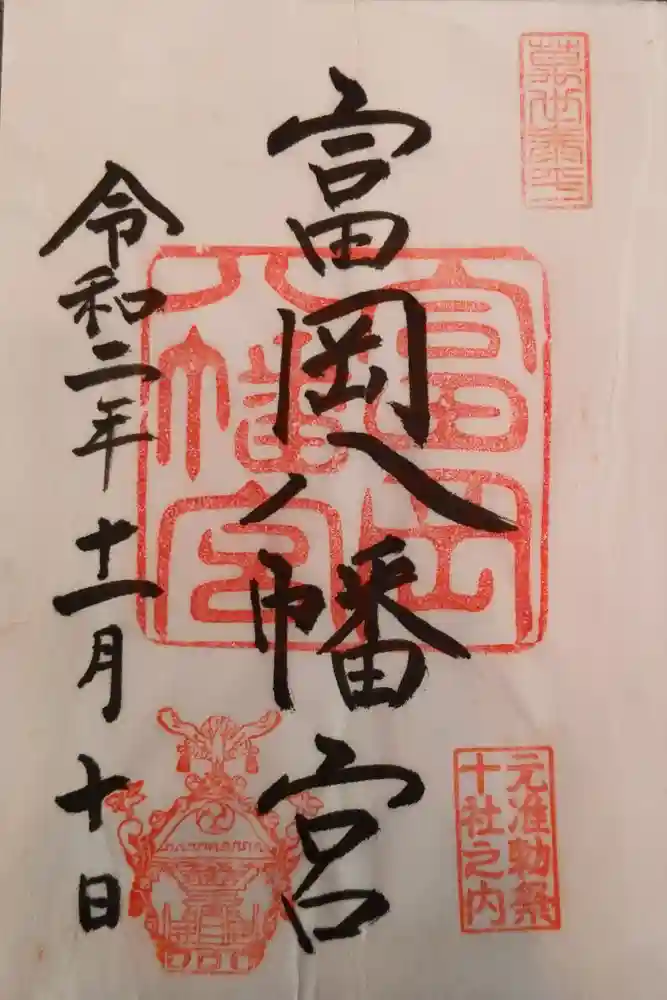 元准勅祭
十社之内
富岡八幡宮
富岡
八幡宮
令和二年十一月十日